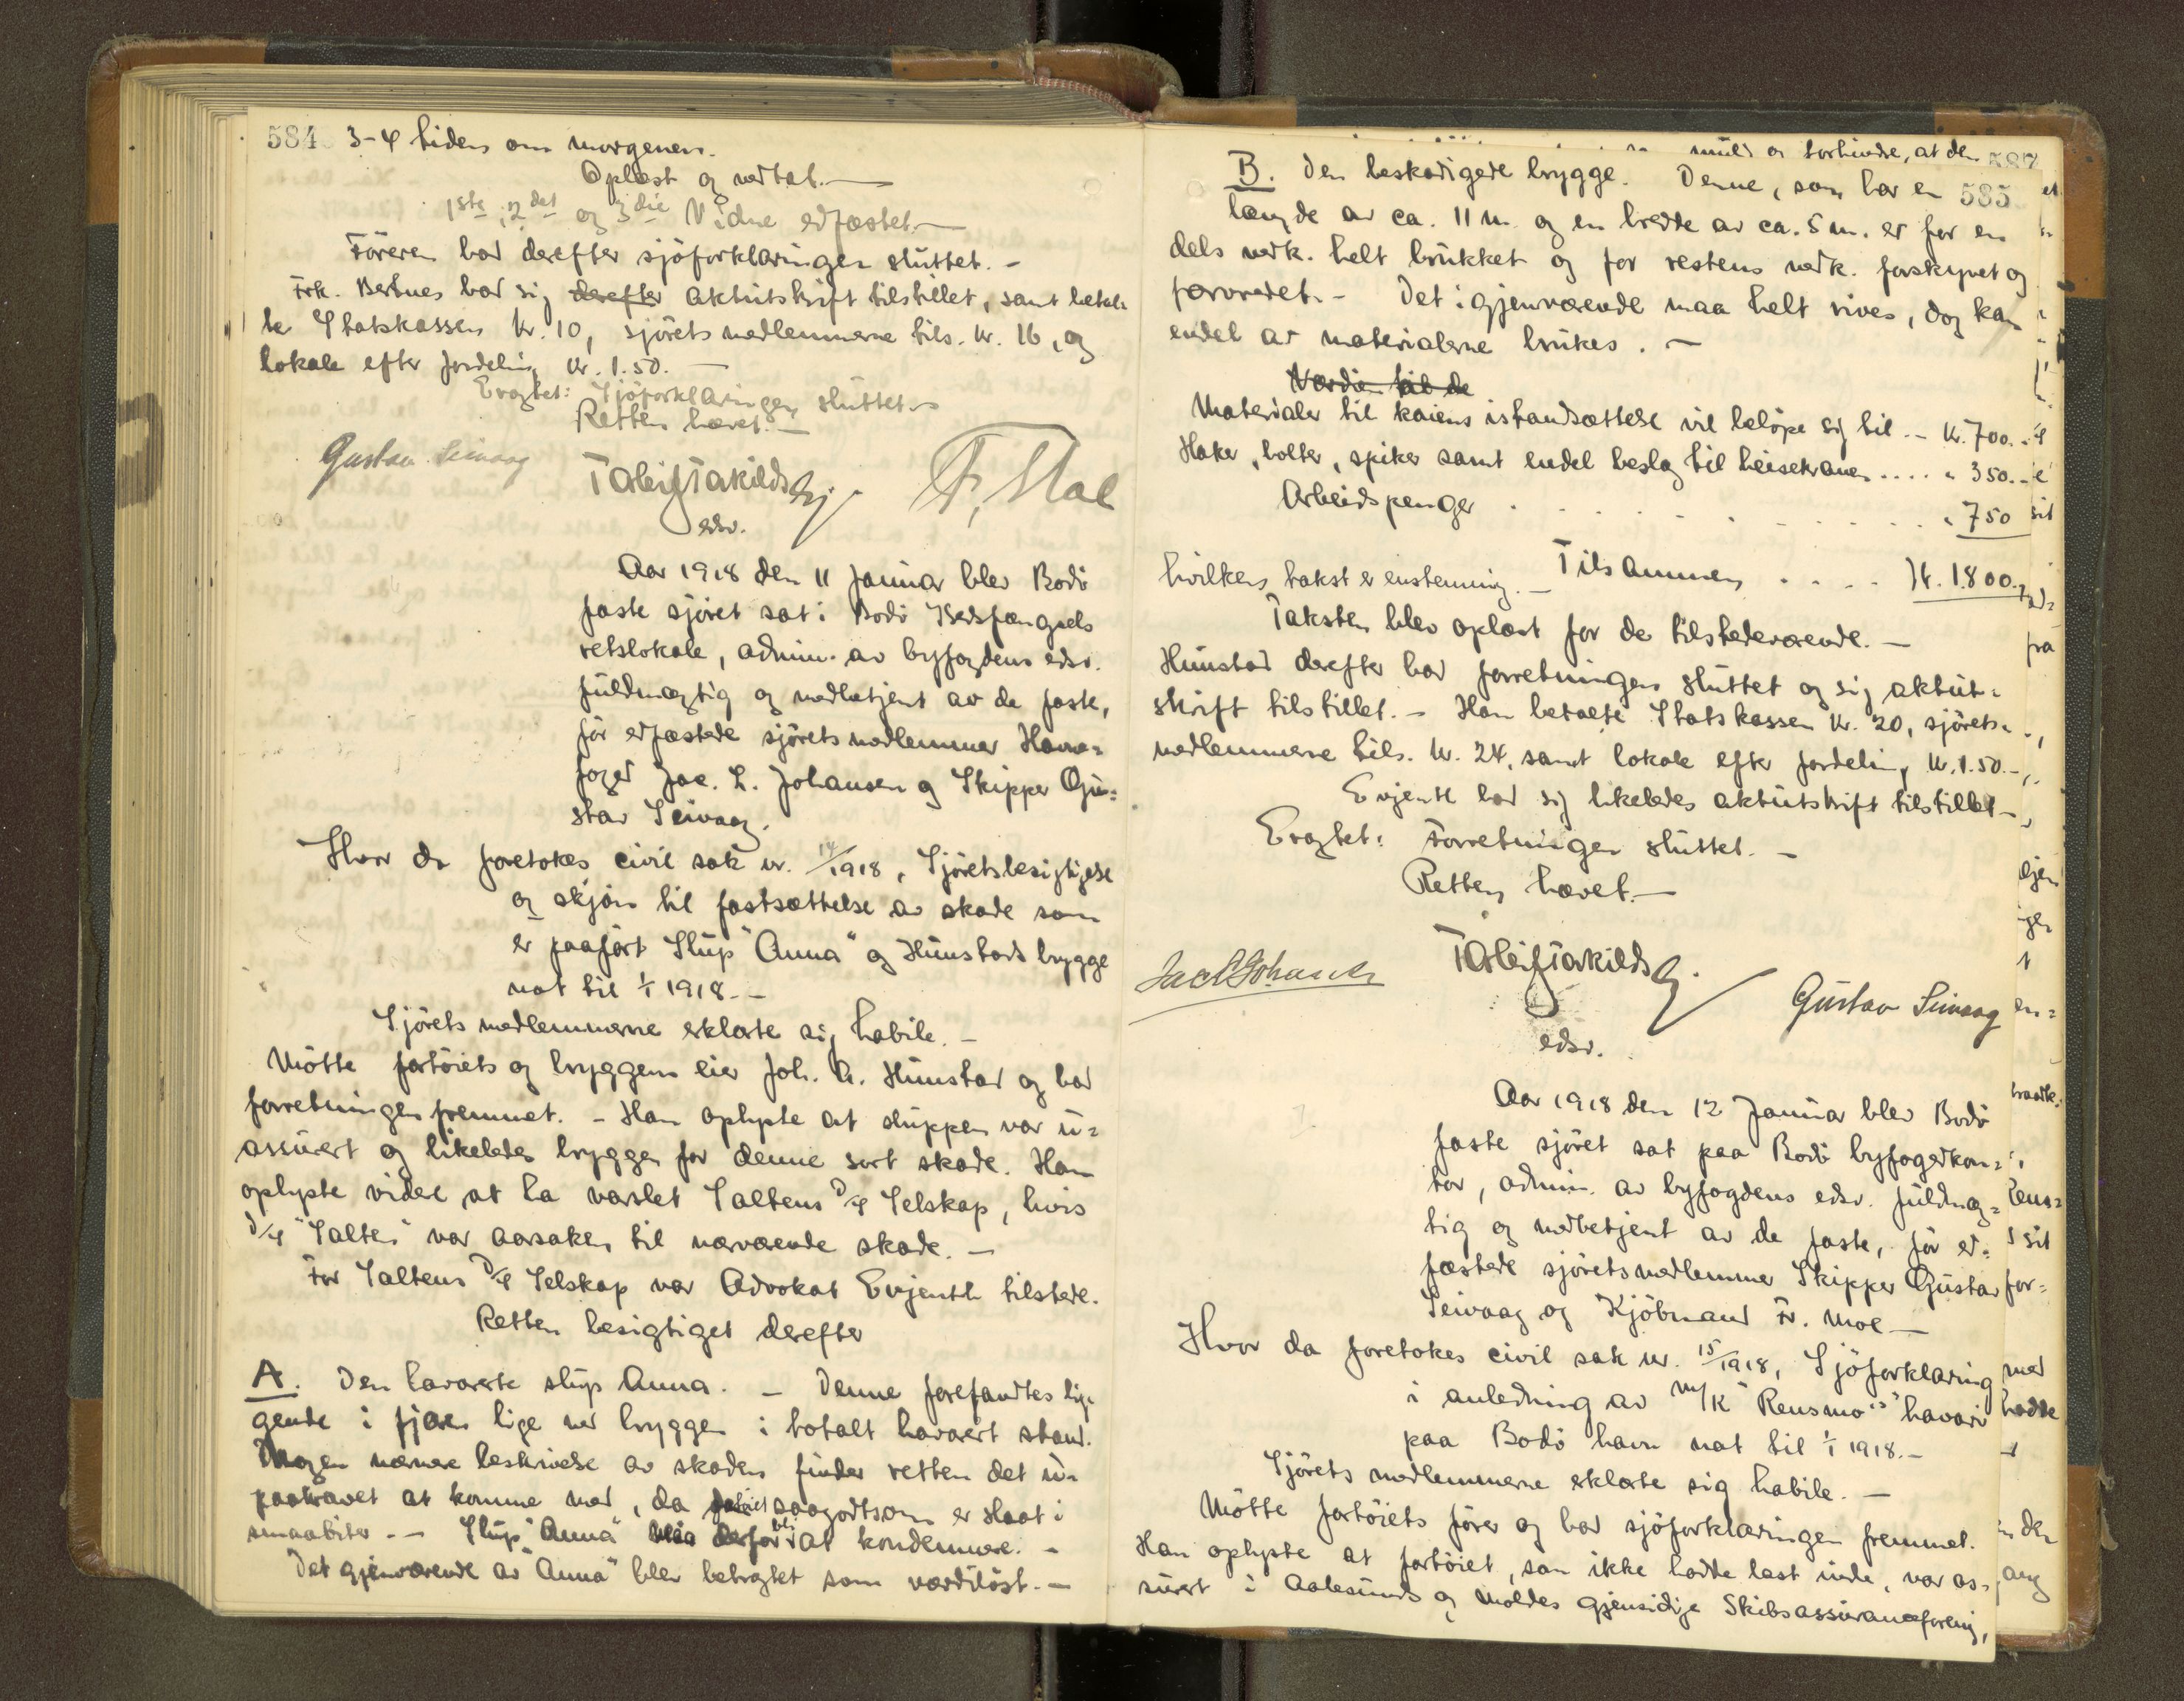 584 3-4 tiden om morgenen.
Oplæst og vedtat.—
1ste, 2det og 3die Vidne edfæstet.—
Föreren bad derefter sjöforklaringen sluttet.-
Frk. Bertnes bad sig derefter aktutskrift tilstillet, samt betal-
te Statskassen kr. 10, sjörets medlemmerne tils. kr. 16, og
lokale efter fordeling kr. 1.50.—
Eragtet: Sjöforklaringen sluttet.
Retten hævet.—
Gustav Seivaag
edsv.
Aar 1918 den 11 Januar blev Bodö
faste sjöret sat i Bodö Kredsfængsels
retslokale, admin. av byfogdens edsv.
fuldmægtig og medbetjent av de faste,
för edfæstede sjörets medlemmer Havne=
foged Jac. L. Johansen og Skipper Gu=
stav Seivaag.
Hvor da foretokes civil sak nr. 14/1918, Sjöretsbesigtigelse
og skjön til fastsættelse av skade som
er paafört Slup "Anna" og Hunstads brygge
nat til 1/1 1918.-
Sjörets medlemmerne erklærte sig habile.-
Mötte fartöiets og bryggens eier Joh. A. Hunstad og bad
forretningen fremmet. - Han oplyste at sluppen var u=
assurert og likeledes bryggen for denne sort skade. Han
oplyste videre at ha varslet Saltens D/S Selskap, hvis
D/S "Salten" var aarsaken til nærværende skade.—
For Saltens D/S Selskap var Advokat Evjenth tilstede.
Retten besigtiget derefter
A. Den havarerte slup Anna. - Denne forefandtes lig-
gende i fjæren lige ved bryggen i totalt havarert stand.
Nogen nærmere beskrivelse av skaden finder retten det u=
paakrævet at komme med, da fartöiet saagodtsom er slaat i
smaabiter.- Slup "Anna" blir derfor at kondemnere.-
Det gjenværende av "Anna" blev betragtet som værdilöst.—
585
B. Den beskadigede brygge. Denne, som har en
længde av ca. 11 m. og en bredde av ca. 5 m. er for en
dels vedk. helt brukket og for restens vedk. forskyvet og
forvredet.- Det igjenværende maa helt rives, dog kan
endel av materialerne brukes.—
Værdien til de
Materialer til kaiens istandsættelse vil belöpe sig til.- kr. 700.-
Haker, bolter, spiker samt endel beslag til heisekranen .... " 350.-
Arbeidspenger . . . . . . . . . . . " 750
Tilsammen . . . . Kr. 1800.-
hvilken takst er enstemmig.—
Taksten blev oplæst for de tilstedeværende.—
Hunstad derefter bad forretningen sluttet og sig aktut=
skrift tilstillet.- Han betalte Statskassen kr. 20, sjörets=
medlemmerne tils. kr. 24, samt lokale efter fordeling kr. 1.50.-
Evjenth bad sig likeledes aktutskrift tilstillet—
Eragtet: Forretningen sluttet.—
Retten hævet.—
Jac L Johansen
Gustav Seivaag
edsv.
Aar 1918 den 12 Januar blev Bodö
faste sjöret sat paa Bodö byfogedkon=
tor, admin. av byfogdens edsv. fuldmæg=
tig og medbetjent av de faste, för ed=
fæstede sjöretsmedlemmer Skipper Gustav
Seivaag og Kjöbmand Fr. Moe—
Hvor da foretokes civil sak nr. 15/1918, Sjöforklaring
i anledning av M/K "Rensmo"s havari
paa Bodö havn nat til 1/1 1918.-
Sjörets medlemmerne erklærte sig habile.—
Mötte fartöiets förer og bad sjöforklaringen fremmet.
Han oplyste at fartöiet, som ikke hadde last inde, var as=
surert i Aalesunds og Moldes gjensidige Skibsassuranceforening,